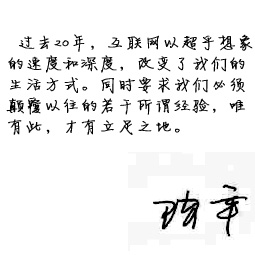 过去20年，互联网以超乎想象
的速度和深度，改变了我们的
生活方式。同时要求我们必须
颠覆以往的若干所谓经验，唯
有此，才有立足之地。